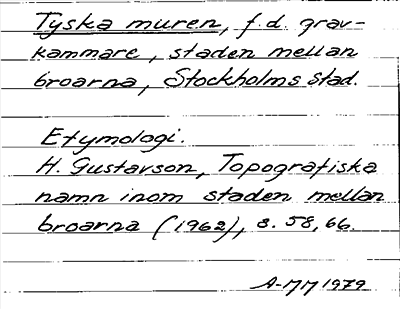 Tyska muren, f.d. grav-
kammare, staden mellan
broarna, Stockholms stad.
Etymologi.
H. Gustavson, Topografiska
namn inom staden mellan
broarna (1962), s. 58, 66.
A-MM 1979